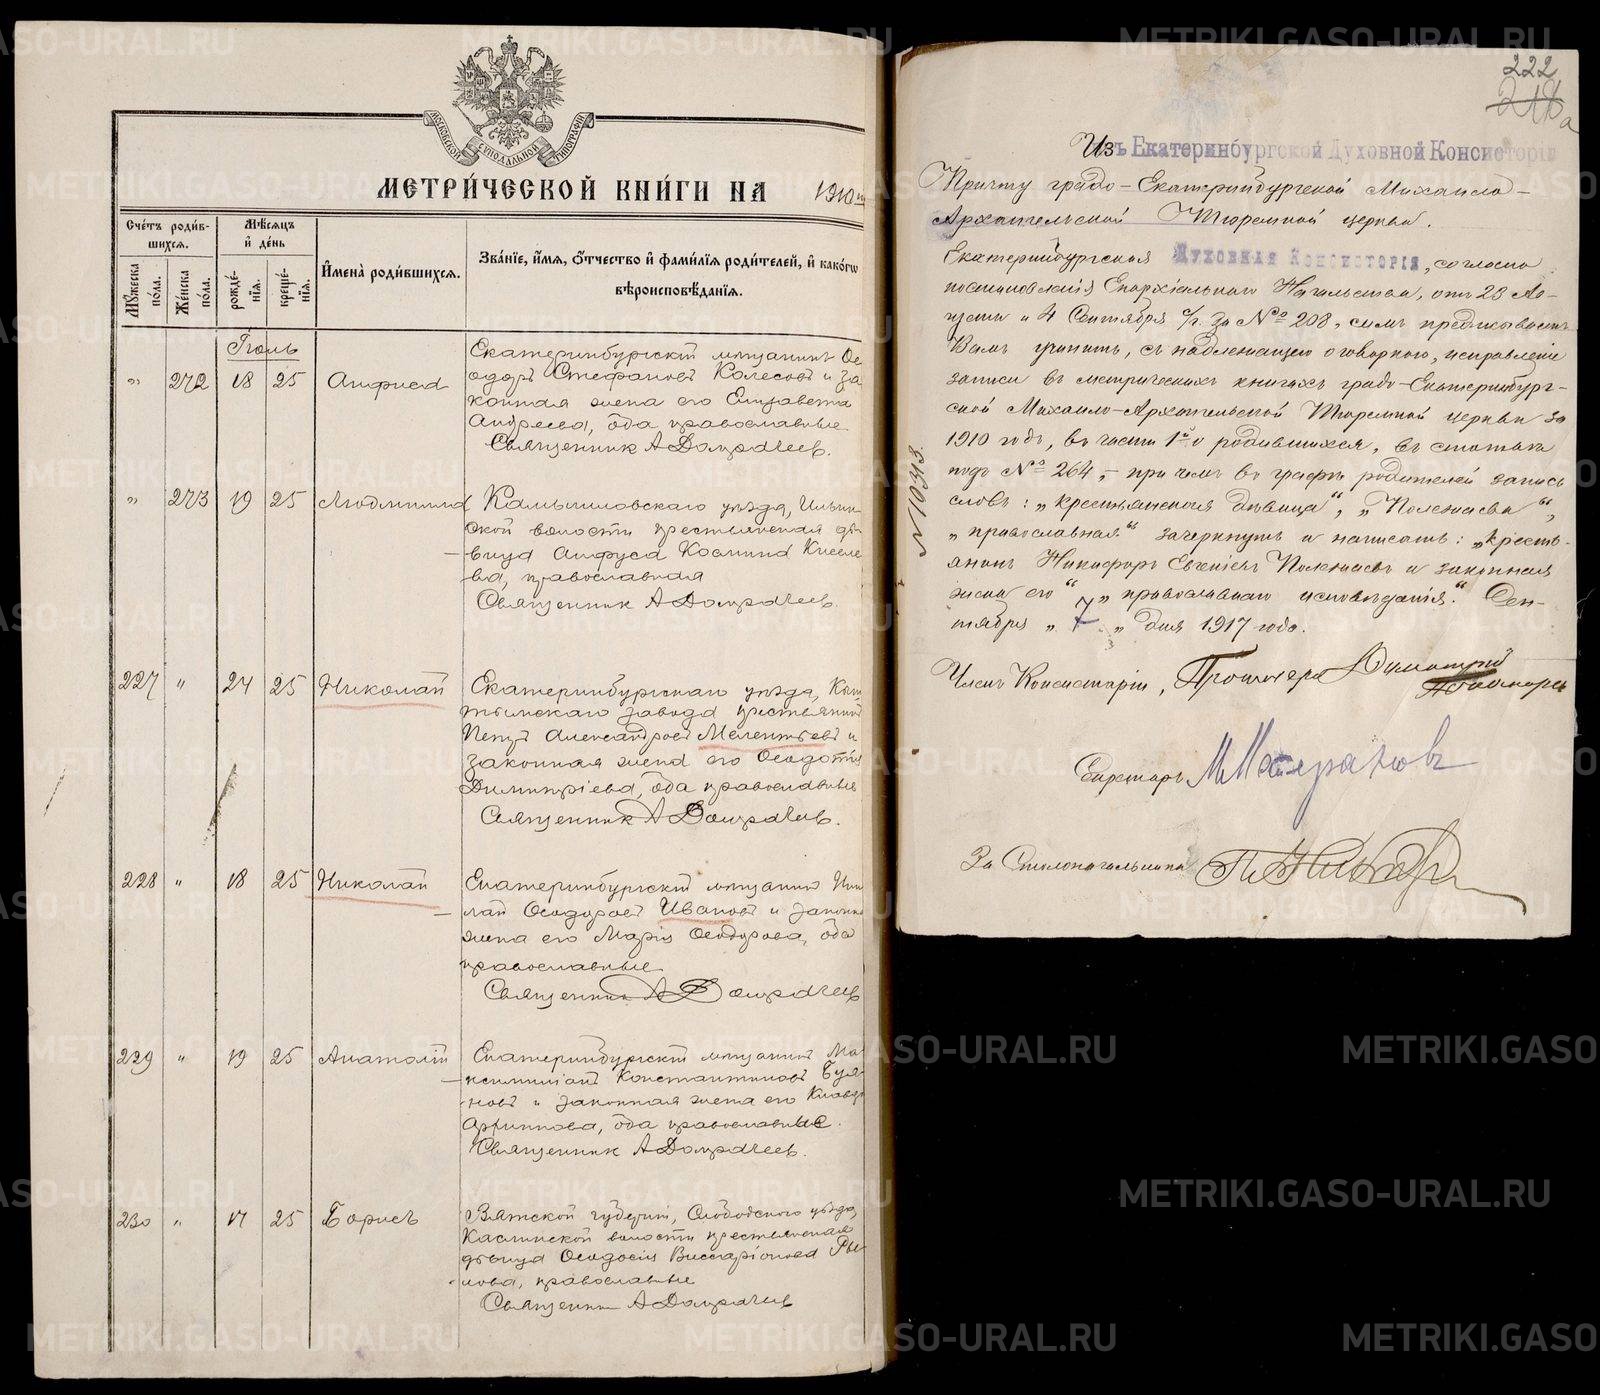 МОСКОВСКОЙ СУНОДАЛЬНОЙ ТИПОГРАФІИ
МЕТРИ́ЧЕСКОЙ КНИ́ГИ НА 1910
Сче́тъ роди́вшихся.
Му́жеска по́ла.
Же́нска по́ла.
Мѣ́сяцъ и де́нь
рожде́нія.
креще́нія.
Имена̀ роди́вшихся.
Зва́нїе, и́мя, о́тчество и фами́лїя роди́телей, и како́гѡ вѣроисповѣ́данїя.
Іюль
" 272 18 25 Анфиса
Екатеринбургскій мѣщанинъ Ѳе-
одоръ Стефановъ Колесовъ и за-
конная жена его Елизавета
Андреева, оба православные
Священник А Домрачеев.
" 273 19 25 Людмила
Камышловскаго уѣзда, Ильин-
ской волости крестьянская дѣ-
вица Анфуса Косьмина Киселе-
ва, православная
Священник А Домрачеев.
227 " 24 25 Николай
Екатеринбургскаго уѣзда, Кыш-
тымскаго завода крестьянин
Петръ Александровъ Мелентьевъ и
законная жена его Ѳеодотія
Димитріева, оба православные
Священник А Домрачеев.
228 " 18 25 Николай
Екатеринбургскій мѣщанин Ник
лай Ѳеодоровъ Ивановъ и законн
жена его Марія Ѳеодорова, оба
православные
Священник А Домрачеев
229 " 19 25 Анатолій
Екатеринбургскій мѣщанин Ма-
ксимиліанъ Константиновъ Буя-
новъ и законная жена его Клавд
оба православные.
Священник А Домрачеев.
230 " 17 25 Борисъ
Вятской губерніи, Слободского уѣзда,
волости крестьянская
дѣвица Ѳеодосія Виссаріонова Ры-
лова, православные
Священник А Домрачеев
222
218
а
Изъ Екатеринбургской Духовной Консисторіи
Причту градо-Екатеринбургской Михаило-
Архангельской Тюремной церкви.
Екатеринбургская Духовная Консисторія, согласно
постановленія Епархіальнаго Начальства, отъ 23 Ав-
густа и 4 Сентября с/г. за № 208, симъ предписываетъ
Вамъ учинить, съ надлежащею оговоркою, исправленіе
записи въ метрическихъ книгахъ градо-Екатеринбург-
ской Михаило-Архангельской Тюремной церкви за
1910 годъ, въ части 1й о родившихся, въ статьѣ
подъ № 264, – при чемъ въ графѣ родителей запись
словъ: „крестьянская дѣвица“, „Полежаева“,
„православная“ зачеркнуть и написать: „кресть-
янинъ Никифоръ Евгеніевъ Полежаевъ и законная
жена его“, „православнаго исповѣданія.“ Сен-
тября „7„ дня 1917 года.
№ 10343
Членъ Консисторіи, Протоіерей Димитрій
Секретарь М
За Столоначальника
METRIKI.GASO-URAL.RU